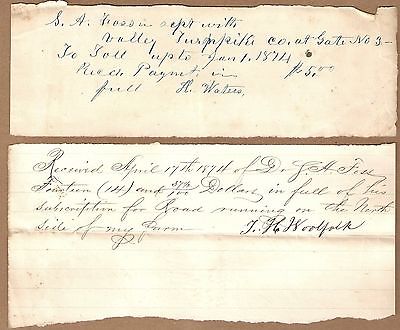 S. A. acpt with
Valley Turnpike co. at Gate No 3-
To Toll upto Jan 1. 1874
Recd Paymt in $5.00
full H. Waters
Received April 17th 1874 of Dr S A Foss
Fourteen (14) and 37½/100 Dollars in full of his
subscription for Road running on the North
side of my farm T. H. Woolfolk